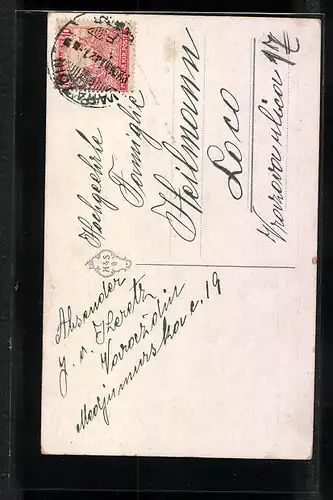 Hochgeehrte
Famiglie
Heilmann
Loco
Vrazova ulica 17
H&S
B
Absender
J. v. Kheretz
Varaždin
Medjimurska c. 19